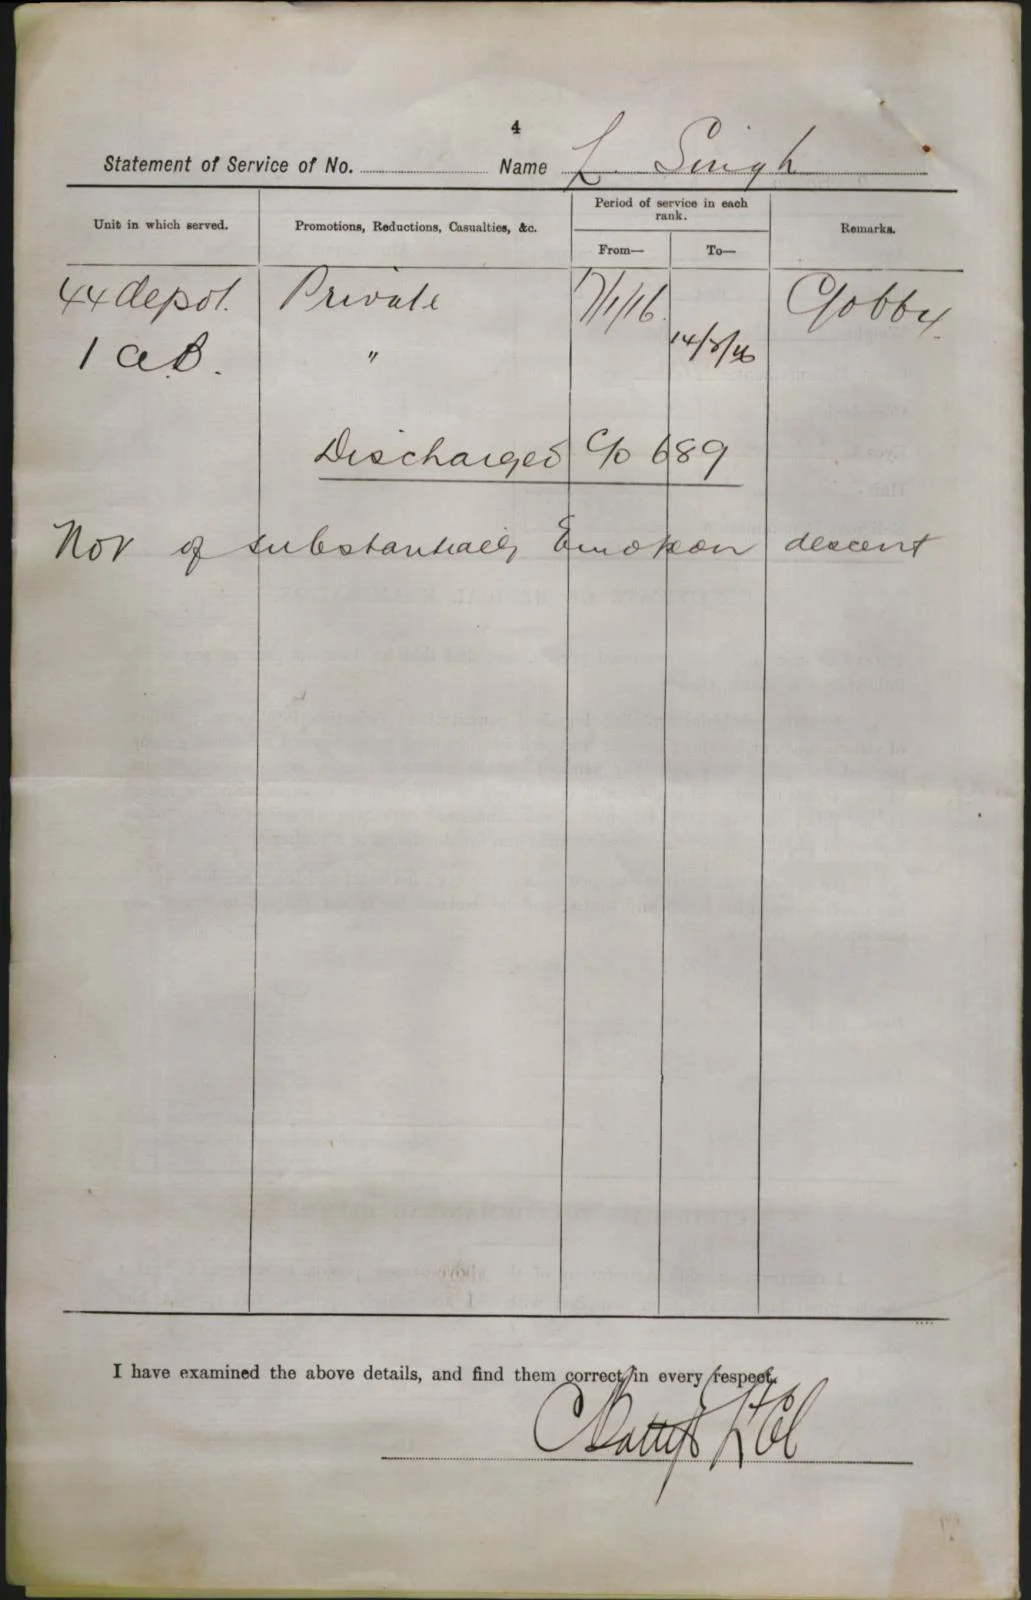 4
Statement of Service of No. Name L. Singh
Unit in which served. Promotions, Reductions, Casualties, &c. Period of service in each rank. Remarks.
From— To—
44 depot. Private 17/1/16 Gobby
1 a B. " 14/3/16
Discharged C/o 689
Not of substantially European descent
I have examined the above details, and find them correct in every respect.